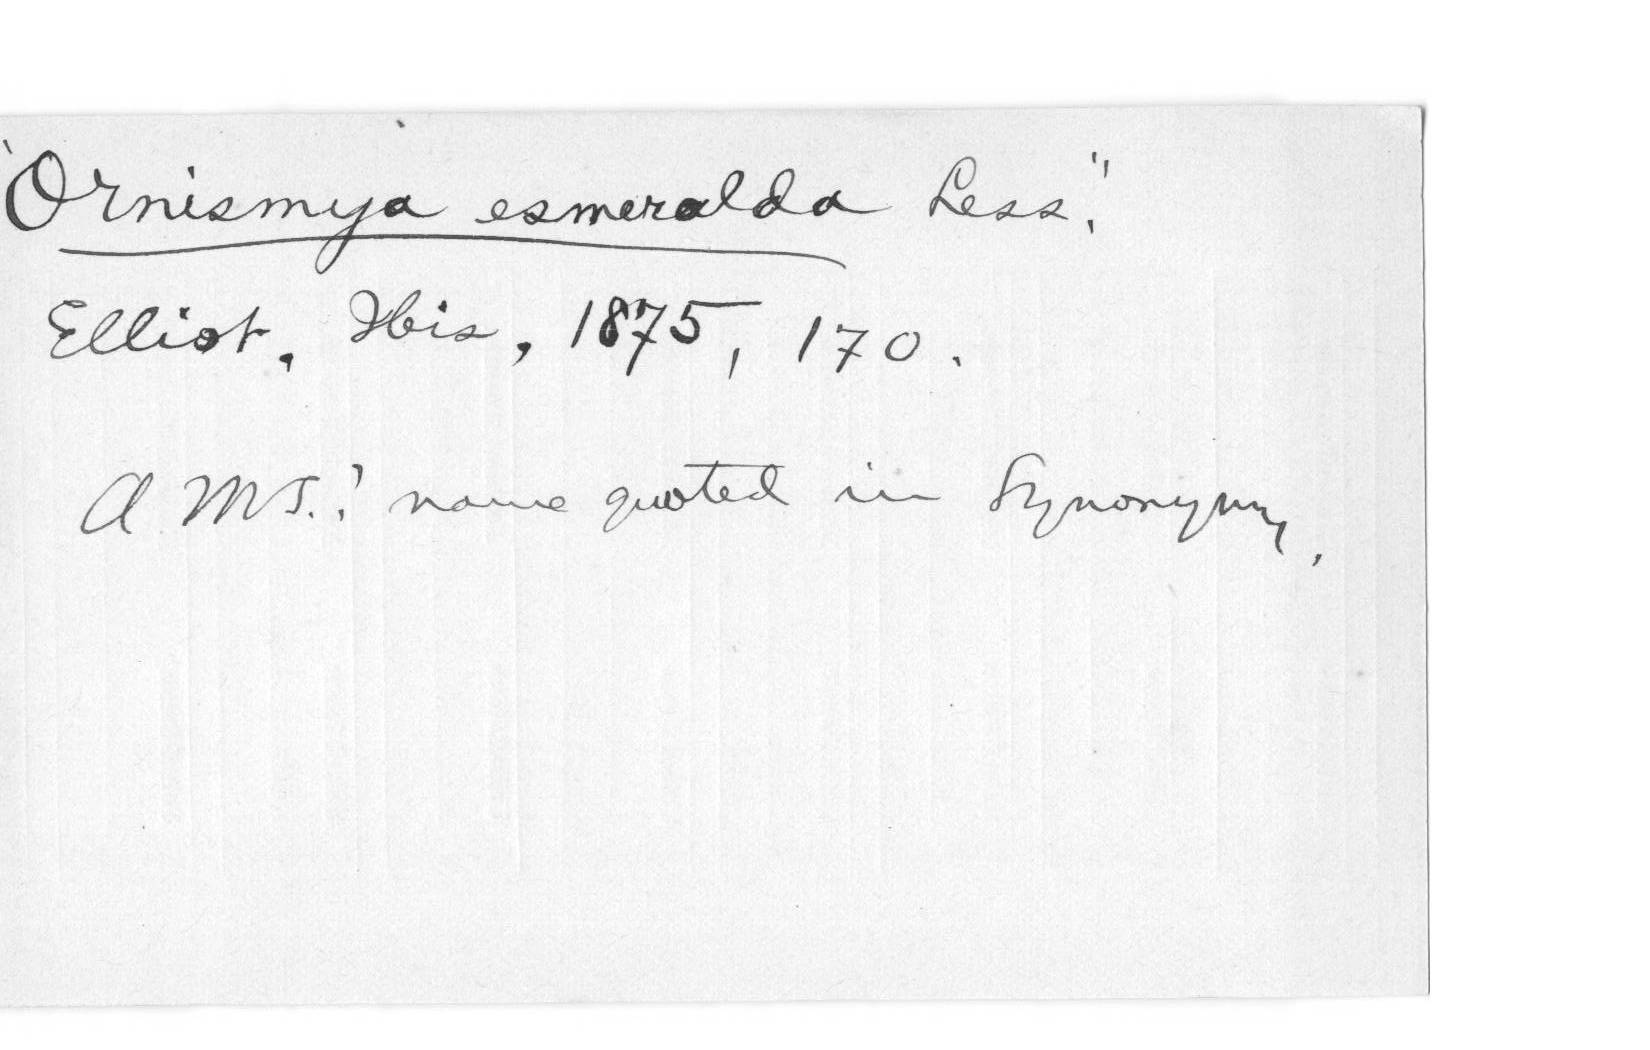 "Ornismya esmeralda Less."
Elliot, Ibis, 1875, 170.
A MS.! name quoted in Synonymy.